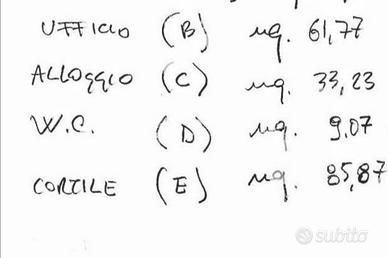 UFFICIO (B) mq. 61,77
ALLOGGIO (C) mq. 33,23
W.C. (D) mq. 9,07
CORTILE (E) mq. 85,87
subito